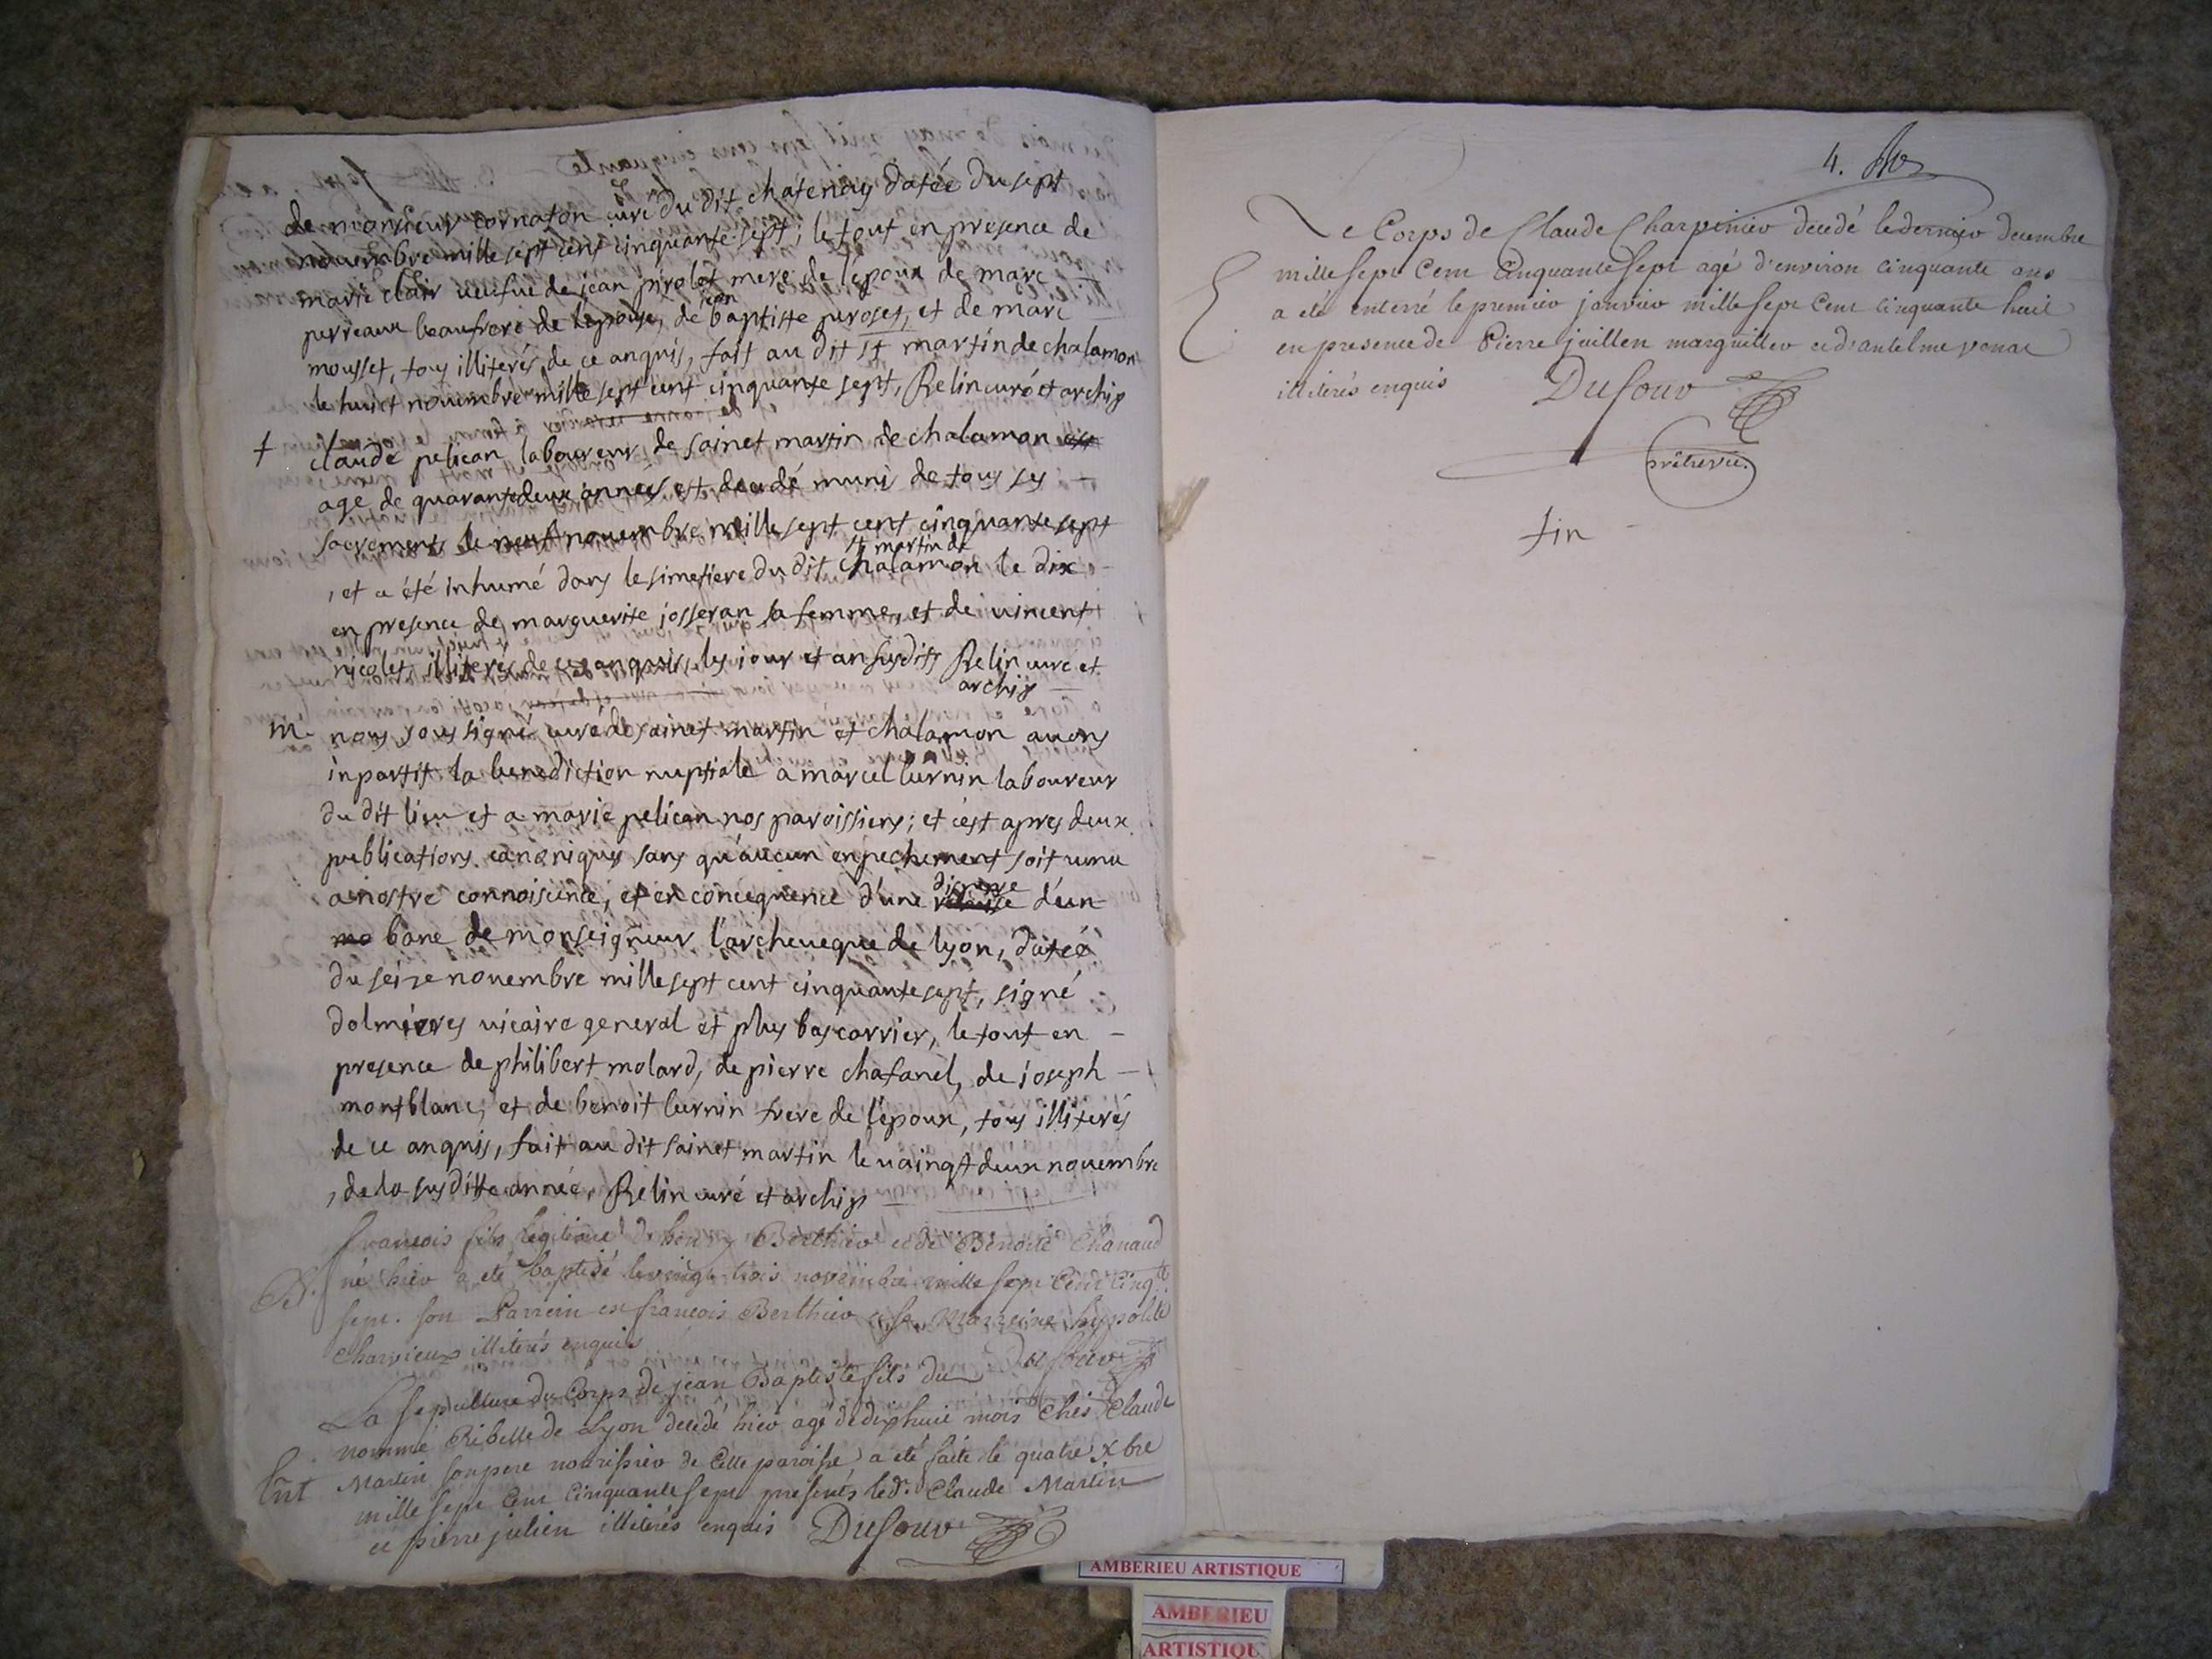 de monsieur cornaton curé du dit chatenay datée du sept
nouembre mille sept cent cinquante sept; le tout en presence de
marie clair ueufue de jean pirolet mere de lepoux de marc
perreaux beaufrere de lepouse, de jean baptiste peroset, et de marc
mousset, tous illiterés de ce anquis, fait au dit st martin de chalamon
le huict nouembre mille sept cent cinquante sept, Relin curé et archip
+ claude pelican laboureur de sainct martin de chalamon
age de quarante deux anneés est decedé muni de tous ses
sacrements le neuf nouembre mille sept cent cinquante sept
, et a été inhumé dans le simetiere du dit st martin de chalamon le dix
en presence de marguerite josseran sa femme, et de uincent
nicolet, illiterés de ce anquis, les jour et an susdits Relin curé et
archip
m. nous sous signé curé de sainct martin et chalamon auons
inpartit la benediction nuptiale a marcel lurnin laboureur
du dit lieu et a marie pelican nos paroissiens; et c'est apres deux
publications canoniques sans qu'aucun enpechement soit uenu
a nostre connoisence, et en concequence d'une dispense d'un
banc de monseigneur l'archeueque de lyon, dateé
du seize nouembre mille sept cent cinquante sept, signé
dolmieres uicaire general et plus bas carrier, le tout en
presence de philibert molard, de pierre chafanel, de joseph
montblanc, et de benoit lurnin frere de l'epoux, tous illiterés
de ce anquis, fait au dit sainct martin le uaingt deux nouembre
, de la susditte année, Relin curé et archip
B. francois fils legitime de henry Berthier et de Benoite Chanaud
né hier a eté baptisé le vingt trois novembre mille sept Cent Cinqte
sept. son Parrein est francois Berthier et sa Marreine hypolite
Charvieux illiterés enquis Dufour
La sepulture du Corps de jean Baptiste fils du
nommé Ribelle de Lyon decedé hier agé de dixhuit mois chés Claude
Martin son pere nourissier de Cette paroisse a eté faite le quatre xbre
mille sept Cent Cinquante sept presents led. Claude Martin
et pierre julien illiterés enquis Dufour
4.
Le Corps de Claude Charpinier decedé le dernier decembre
mille sept Cent Cinquante sept agé d'environ cinquante ans
a eté enterré le premier janvier mille sept Cent cinquante huit
en presence de Pierre juillen marguillier et d'antelme venac
illiterés enquis Dufour
prêtre vic.
fin
AMBERIEU ARTISTIQUE
AMBERIEU
ARTISTIQU